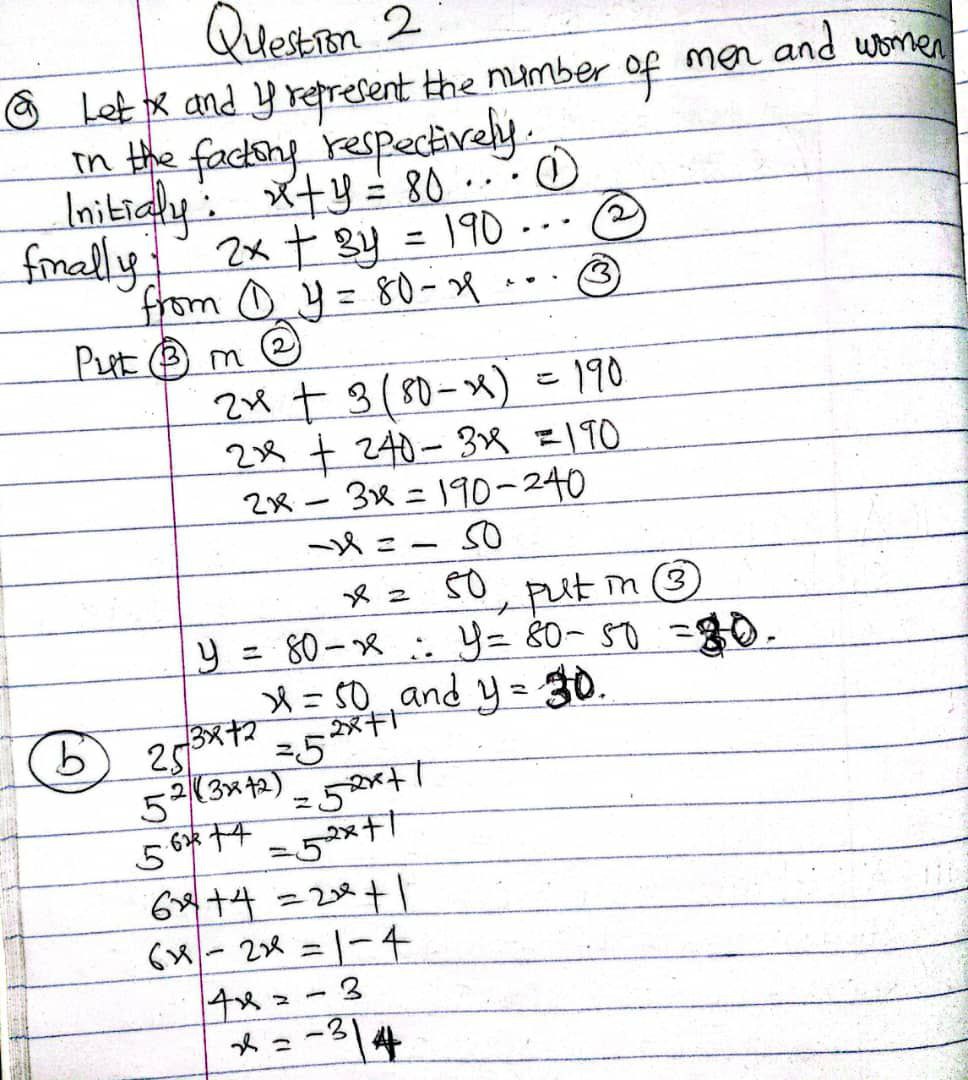 Question 2
ⓐ Let x and y represent the number of men and women
in the factory respectively.
Initialy: x+y = 80 ... ①
finally: 2x + 3y = 190 ... ②
from ① y = 80-x ... ③
Put ③ in ②
2x + 3(80-x) = 190
2x + 240-3x =190
2x - 3x = 190-240
-x = - 50
x = 50, put in ③
y = 80-x ∴ y= 80-50 =30.
x = 50 and y = 30.
ⓑ 25^{3x+2} =5^{2x+1}
5^{2(3x+2)} =5^{2x+1}
5^{6x+4} =5^{2x+1}
6x+4 =2x+1
6x-2x =1-4
4x = -3
x = -3/4